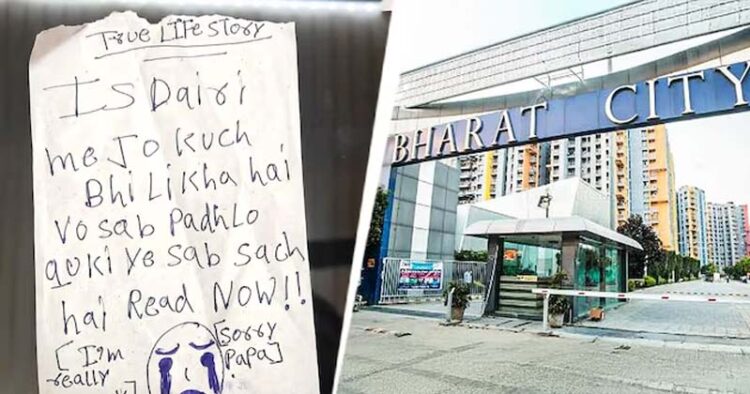 True LIFE STORY
IS Dairi
me Jo kuch
Bhi Likha hai
Vo sab Padhlo
quki ye sab sach
hai Read NOW!!
[I'm
really
[Sorry
Papa]
BHARAT CITY